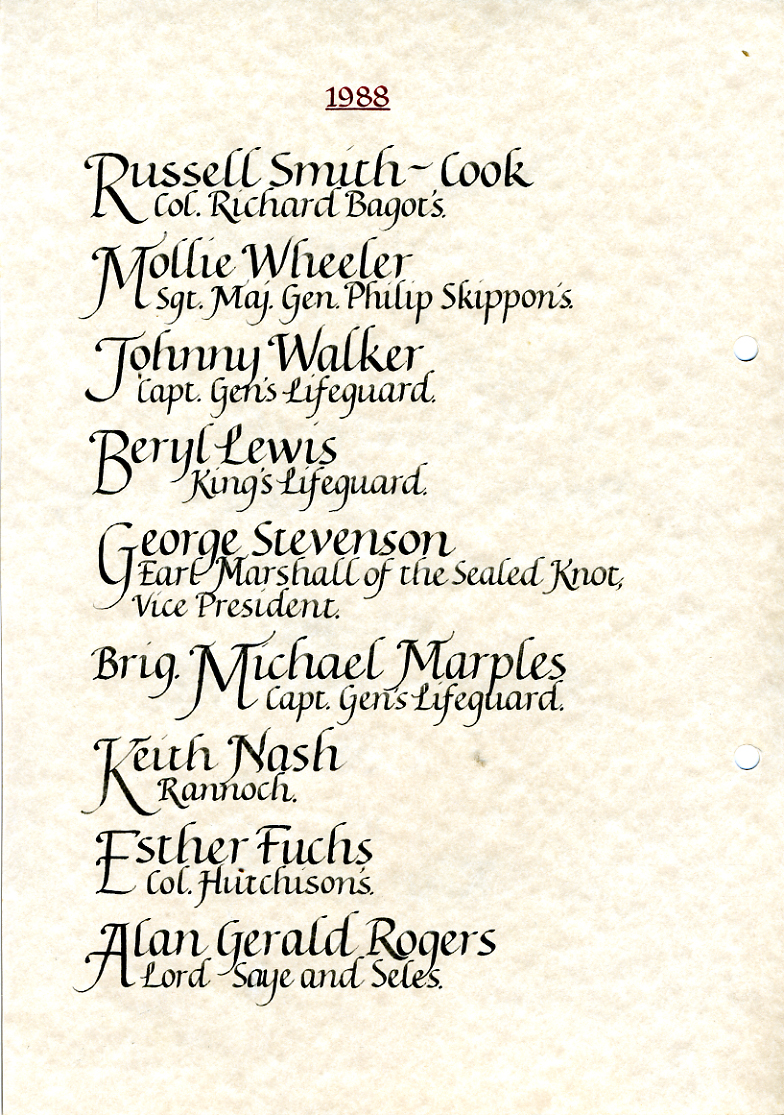 1988
Russell Smith-Cook
Col. Richard Bagot's.
Mollie Wheeler
Sgt. Maj. Gen. Philip Skippon's.
Johnny Walker
Capt. Gen's Lifeguard.
Beryl Lewis
King's Lifeguard.
George Stevenson
Earl Marshall of the Sealed Knot,
Vice President.
Brig. Michael Marples
Capt. Gen's Lifeguard.
Keith Nash
Rannoch.
Esther Fuchs
Col. Hutchison's.
Alan Gerald Rogers
Lord Saye and Seles.